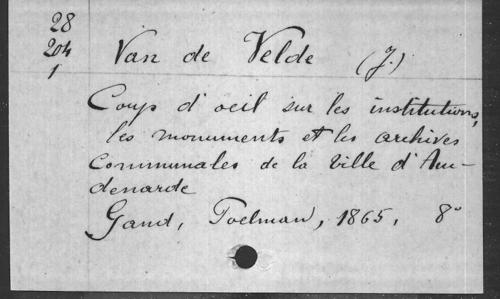 28
204
1
Van de Velde (J.)
Coup d'oeil sur les institutions,
les monuments et les archives
communales de la ville d'Au-
denarde
Gand, Toelman, 1865, 8°